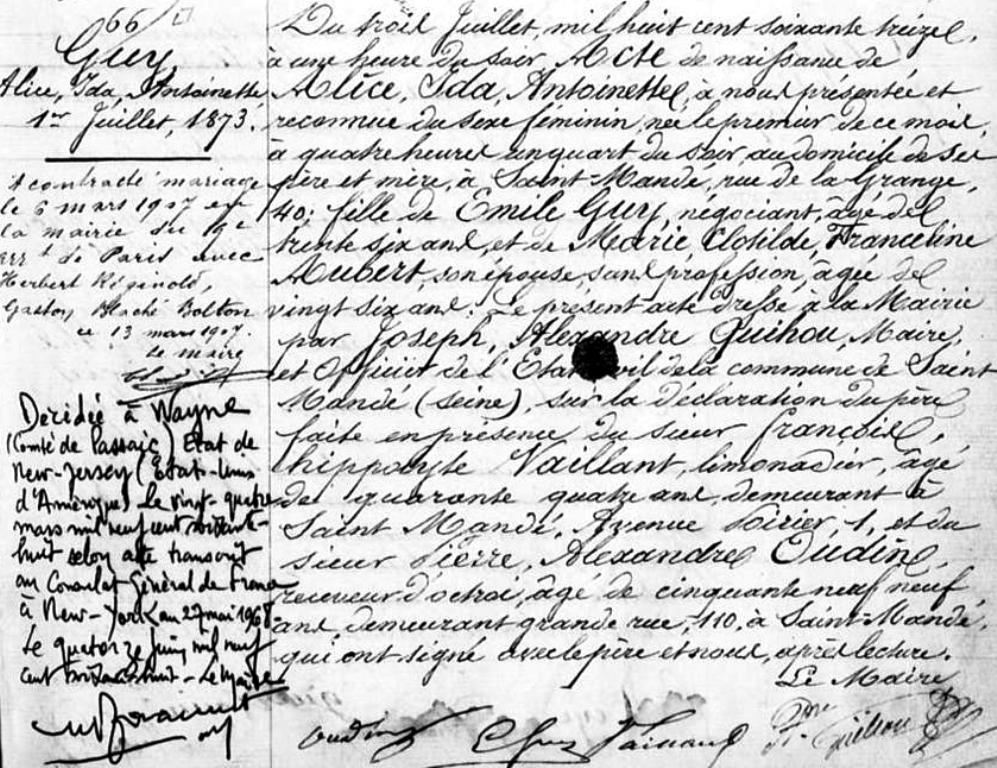 66
Guy
Alice, Ida, Antoinette,
1er Juillet, 1873.
A contracté mariage
le 6 mars 1907 en
la mairie du 19e
arrt de Paris avec
Herbert Réginold,
Gaston, Blaché Bolton
ce 13 mars 1907.
Le maire
Décédée à Wayne
(Comté de Passaic) Etat de
New-Jersey (Etats-Unis
d'Amérique) le vingt-quatre
mars mil neuf cent soixante-
huit selon acte transcrit
au Consulat Général de France
à New-York au 27 mai 1968
Le quatorze juin mil neuf
cent soixante huit - Le Maire
Du trois Juillet, mil huit cent soixante treize,
à une heure du soir, Acte de naissance de
Alice, Ida, Antoinette, à nous présentée et
reconnue du sexe féminin, née le premier de ce mois,
à quatre heures un quart du soir, au domicile de ses
père et mère, à Saint-Mandé, rue de la Grange,
40; fille de Emile Guy, négociant, âgé de
trente six ans, et de Marie Clotilde, Franceline
Aubert, son épouse, sans profession, âgée de
vingt six ans. Le présent acte dressé à la Mairie
par Joseph, Alexandre Quihou, Maire,
et Officier de l'Etat civil de la commune de Saint
Mandé (Seine), sur la déclaration du père
faite en présence du sieur François,
hippolyte Vaillant, limonadier, âgé
de quarante quatre ans, demeurant à
Saint Mandé, Avenue Voirier, 1, et du
sieur Pierre, Alexandre Oudin,
receveur d'octroi, âgé de cinquante neuf neuf
ans, demeurant grande rue, 110, à Saint-Mandé,
qui ont signé avec le père et nous, après lecture.
Le Maire
Oudin E Guy Vaillant Quihou